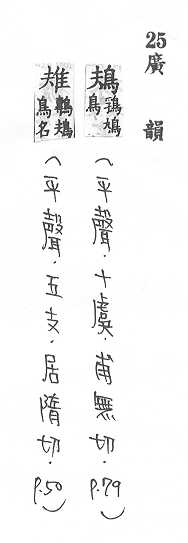 25 廣韻
鳺 鳥(平聲．十虞．甫無切．P.79)
鳥名(平聲．五支．居隋切．P.50)